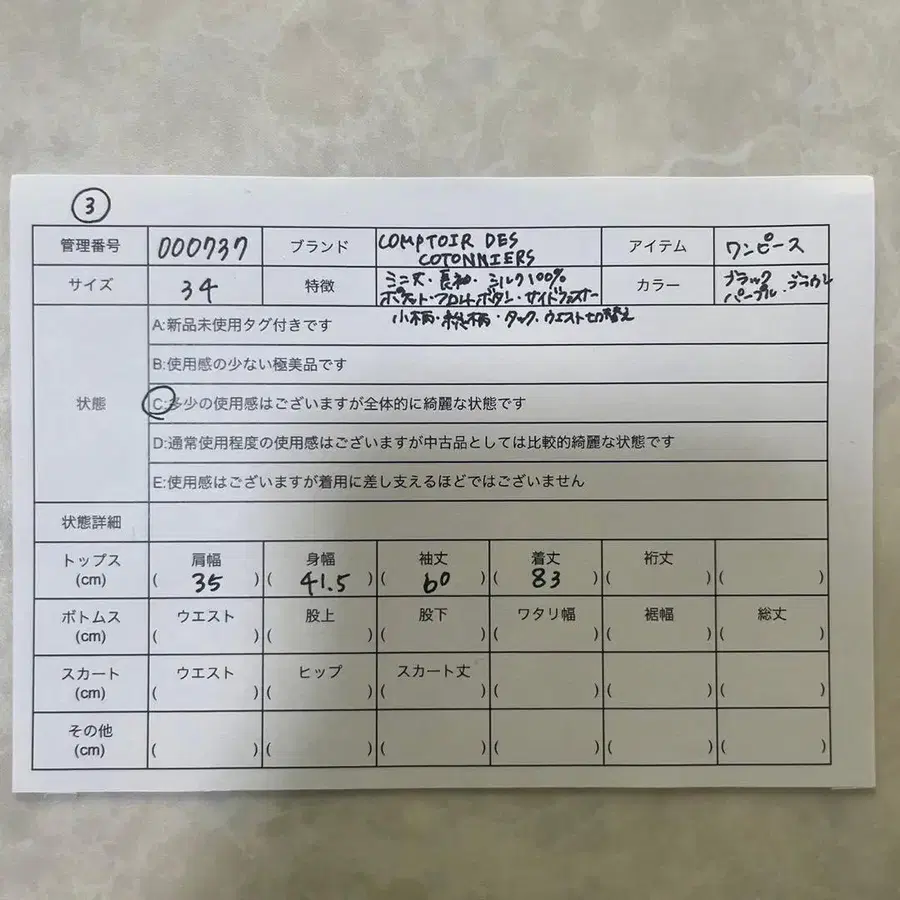 3
管理番号 000737 ブランド COMPTOIR DES COTONNIERS アイテム ワンピース
サイズ 34 特徴 ミニ丈・長袖・シルク100% カラー ブラック・ブラウン
ポケット・フロントボタン・サイドファスナー パープル
小柄・総柄・タック・ウエスト切替え
状態
A:新品未使用タグ付きです
B:使用感の少ない極美品です
C:多少の使用感はございますが全体的に綺麗な状態です
D:通常使用程度の使用感はございますが中古品としては比較的綺麗な状態です
E:使用感はございますが着用に差し支えるほどではございません
状態詳細
トップス 肩幅 身幅 袖丈 着丈 裄丈
(cm) ( 35 ) ( 41.5 ) ( 60 ) ( 83 ) ( ) ( )
ボトムス ウエスト 股上 股下 ワタリ幅 裾幅 総丈
(cm) ( ) ( ) ( ) ( ) ( ) ( )
スカート ウエスト ヒップ スカート丈
(cm) ( ) ( ) ( ) ( ) ( ) ( )
その他
(cm) ( ) ( ) ( ) ( ) ( ) ( )